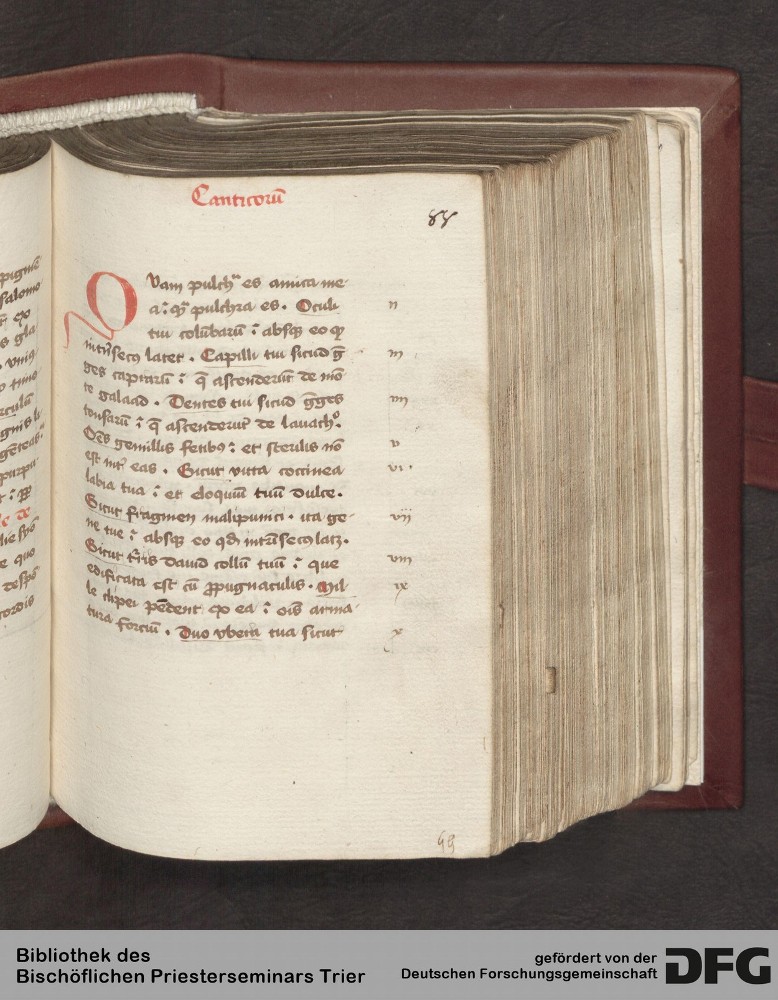 Canticorū
88
Quam pulch̄ es amica me-
a : q̄ pulchra es . Oculi
tui colūbarū : absq; eo qͥ
intrīsecꝰ latet . Capilli tui sicud ḡ
ges caprarū : q̄ ascenderūt de mō
te galaad . Dentes tui sicud ḡges
tonsarū : q̄ ascenderūt de lauachͦ .
Oēs gemillis fetibꝫ : et sterilis nō
est int̄ eas . Sicut vitta coccinea
labia tua : et eloquiū tuū dulce .
Sicut fragmen malipunici . ita ge-
ne tue : absq; eo qd intrīsecꝰ latꝫ .
Sicut tr̄ris dauid collū tuū : que
edificata est cū ꝓpugnaculis . Mil-
le clipei pēdent ex ea : oīs arma-
tura forciū . Duo vbera tua sicut
ii
iii
iiii
v
vi
vii
viii
ix
x
pignie
salomo
ex
s gla
vniq
o timo
gnis li
purpu
le de
e quo
cordis
99
Bibliothek des
Bischöflichen Priesterseminars Trier
gefördert von der
Deutschen Forschungsgemeinschaft
DFG